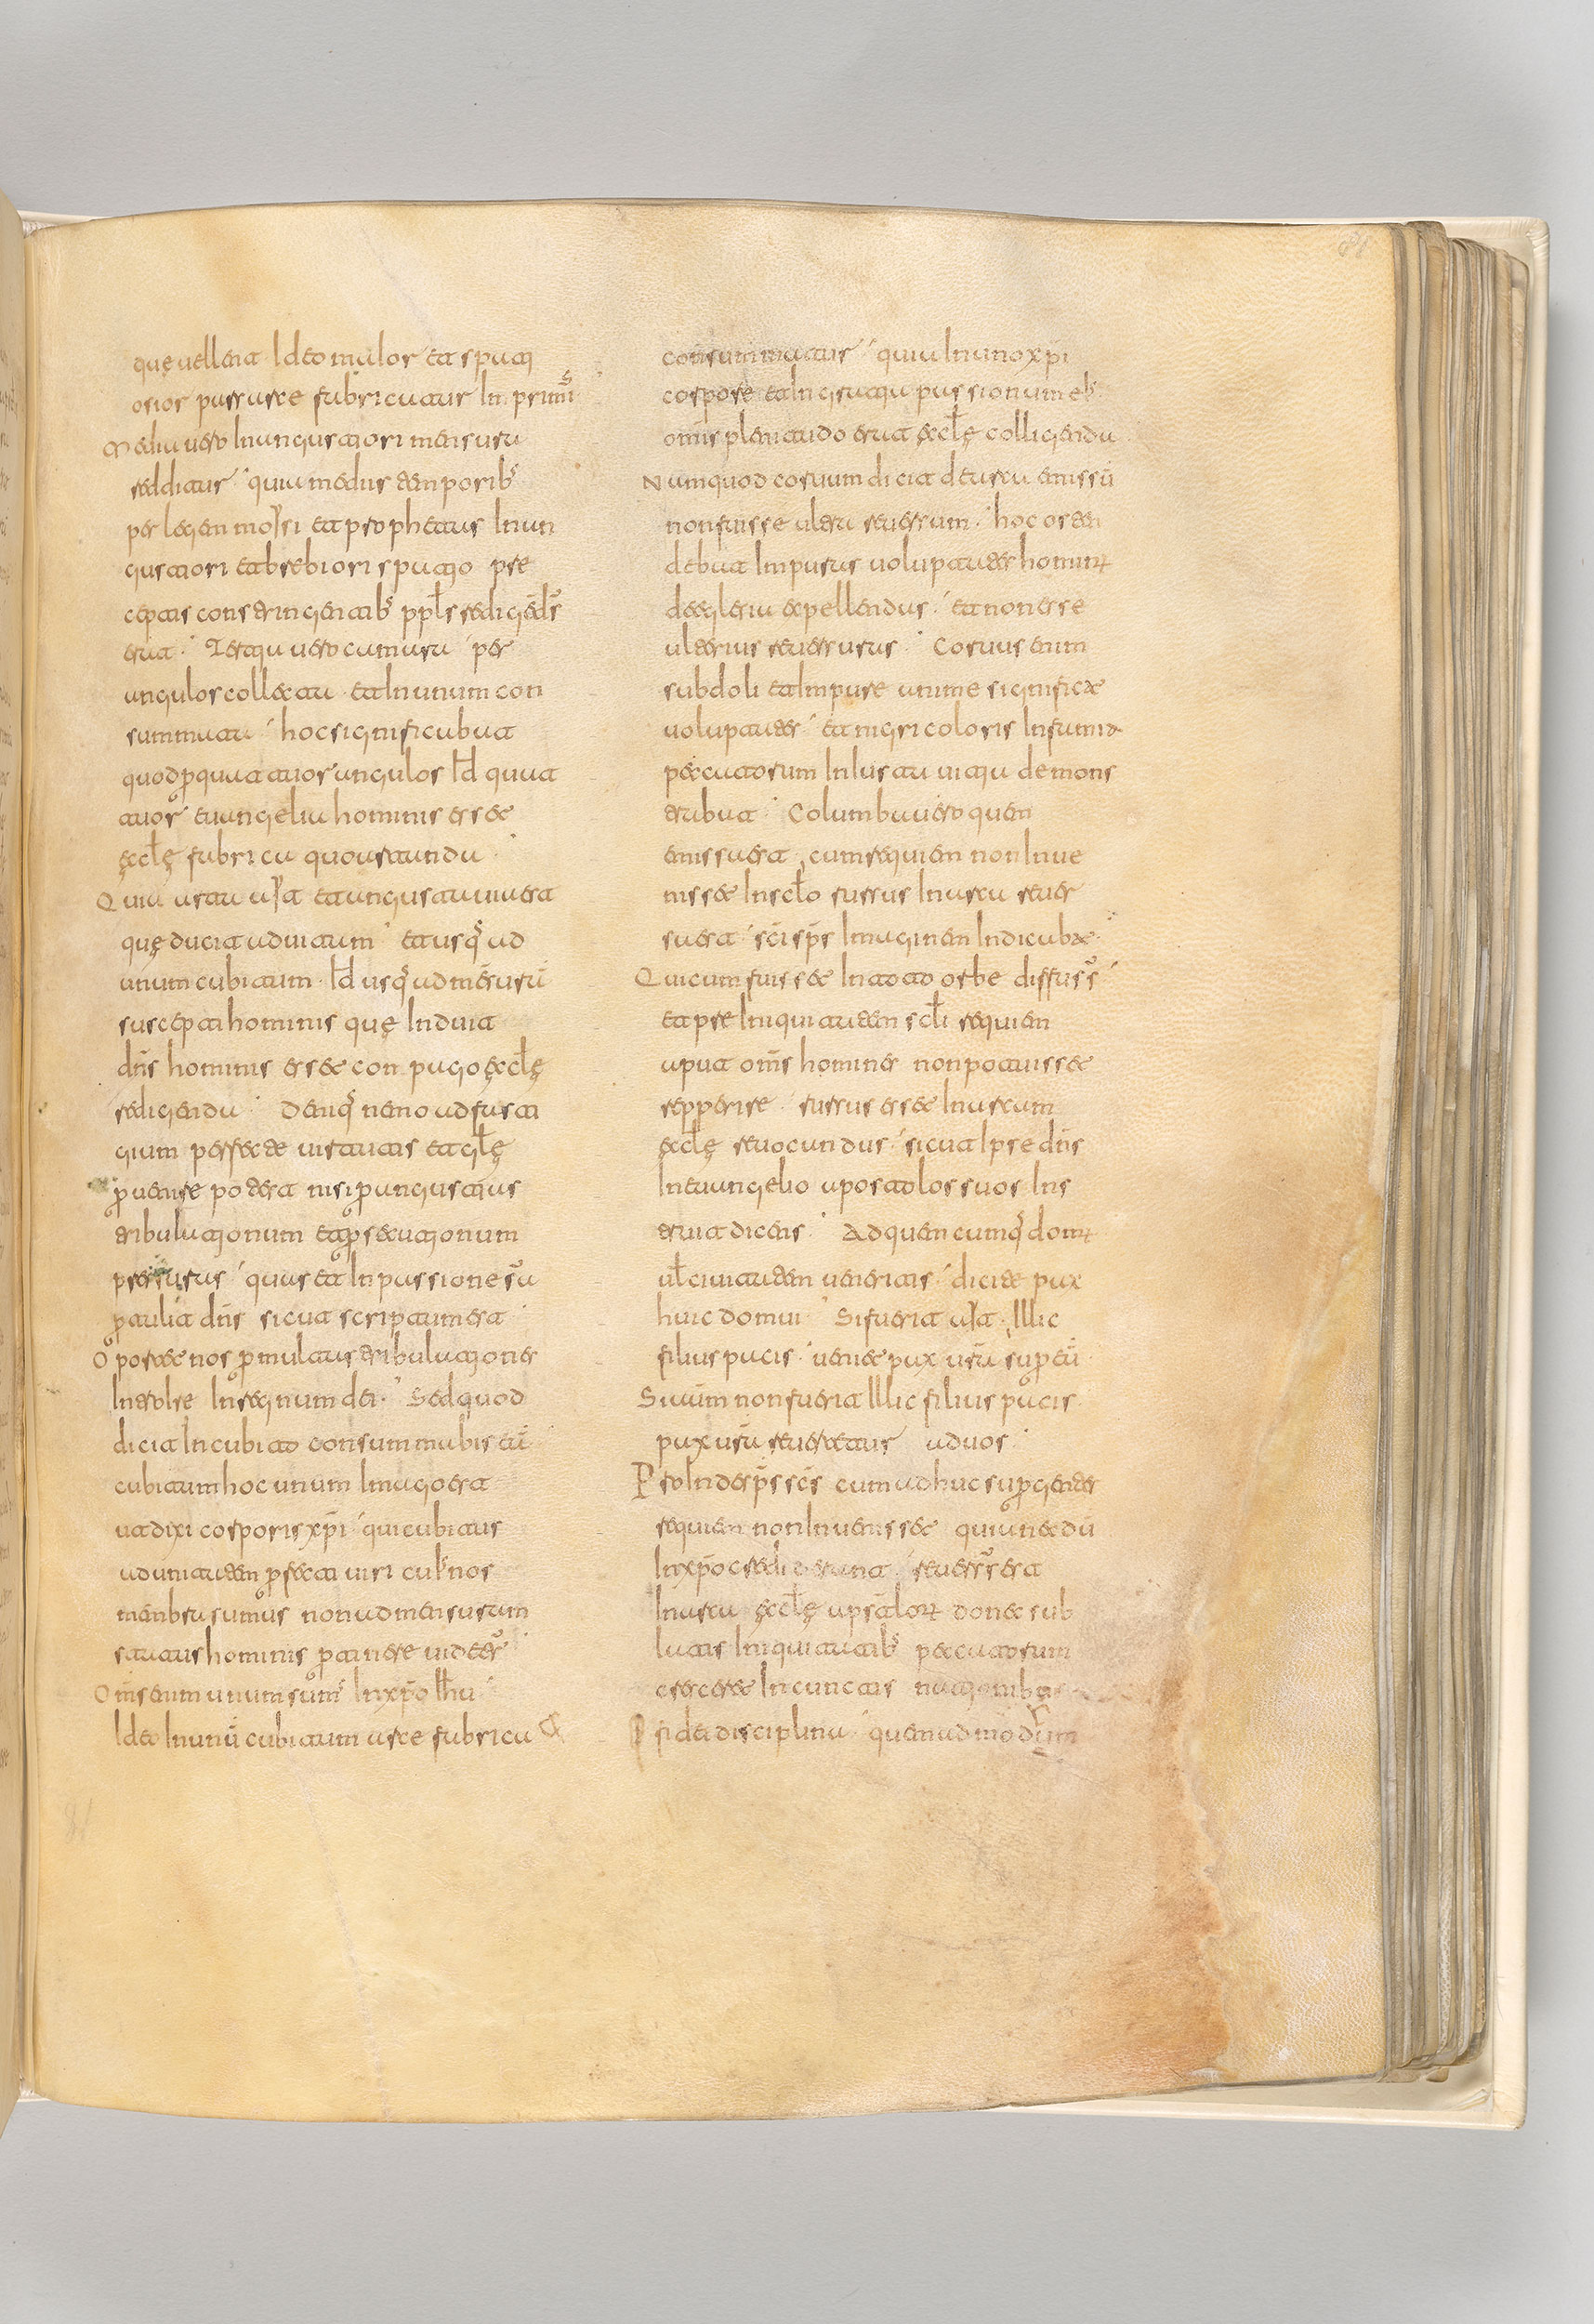 quę uellent Ideo maior et spati
osior pars arce fabricatur In primis
Media uero In angustiori mensura
redditur · quia mediis temporibꝰ
per legem moysi et prophetas In an
gustiori et brebiori spatio pre
ceptis constringentibꝰ ppl̄s redigēdꝰs
erat · Tertia uero camara per
angulos collecta et In unum con
summata hoc significabat
quod ꝑ quattuor angulos Id̄ quat
tuor euangelia hominis esset
ęcl̄ę fabrica quoartanda ·
Quia arta uia et angusta uia est
quę ducit ad uitam et usqꝫ ad
unum cubitum Id̄ usqꝫ ad mēsurā
suscepti hominis quę Induit
dn̄s hominis esset conpagio ęcl̄ę
redigenda · Deniqꝫ nemo ad fasti
gium perfecte uirtutis et gl̄ę
ꝑuenire poterit nisi ꝑ angustias
tribulationum et ꝑsecutionum
pressuras quas et In passione sua
ꝑtulit dn̄s sicut scriptum est
Oportet nos ꝑ multas tribulationes
Introire In regnum dei · Sed quod
dicit In cubito consummabis eā
cubitum hoc unum Imago est
ut dixi corporis xp̄i qui cubitus
ad unitatem ꝑfecti uiri cuiꝰ nos
menbra sumus non ad mensuram
status hominis ꝑtinere uidetur
Om̄s enim unum sumꝰ In xp̄o Ih̄u
Ideo In unū cubitum arce fabrica
consummatur quia In uno xp̄i
corpore et In gratia passionum eiꝰ
om̄is plenitudo erat ęcl̄ę colligenda
Numquod coruum dicit de arca emissū
non fuisse ultra reuersum · hoc osten
debat Inpuras uoluptates hominū
de eglesia expellendas · et non esse
ulterius reuersuras · Coruus enim
subdoli et Inpure anime significat
uoluptates et nigri coloris Infamia
peccatorum Inlustata uita demons
trabat · Columba uero quem
emiserat cum requiem non Inue
nisset In scl̄o rursus In arca reuer
sa erat sc̄i sp̄s Imaginem Indicabat
Qui cum fuisset In toto orbe diffusꝰs
et pre Iniquitatem scl̄i requiem
aput om̄s homines non potuisset
repperire rursus esset In arcam
ęcl̄ę reuocandus · sicut Ipse dn̄s
In euangelio apostolos suos Ins
truit dicens · Ad quemcumqꝫ domū
ul̄ ciuitatem ueneritis · dicite pax
huic domui · Si fuerit uia Illic
filius pacis · ueniet pax ur̄a suꝑ eū
Si autem non fuerit Illic filius pacis
pax ur̄a reuertetur ad uos ·
Proinde sp̄s sc̄s cum adhuc suꝑ gentes
requiem non Inuenisset quia necdū
In xp̄o crediderunt reuersꝰs est
In arca ęcl̄ę apsāloꝝ donec sub
latis Iniquitatibꝰ peccatorum
cresceret In cunctis nationibus
fidei disciplina · quemadmodum